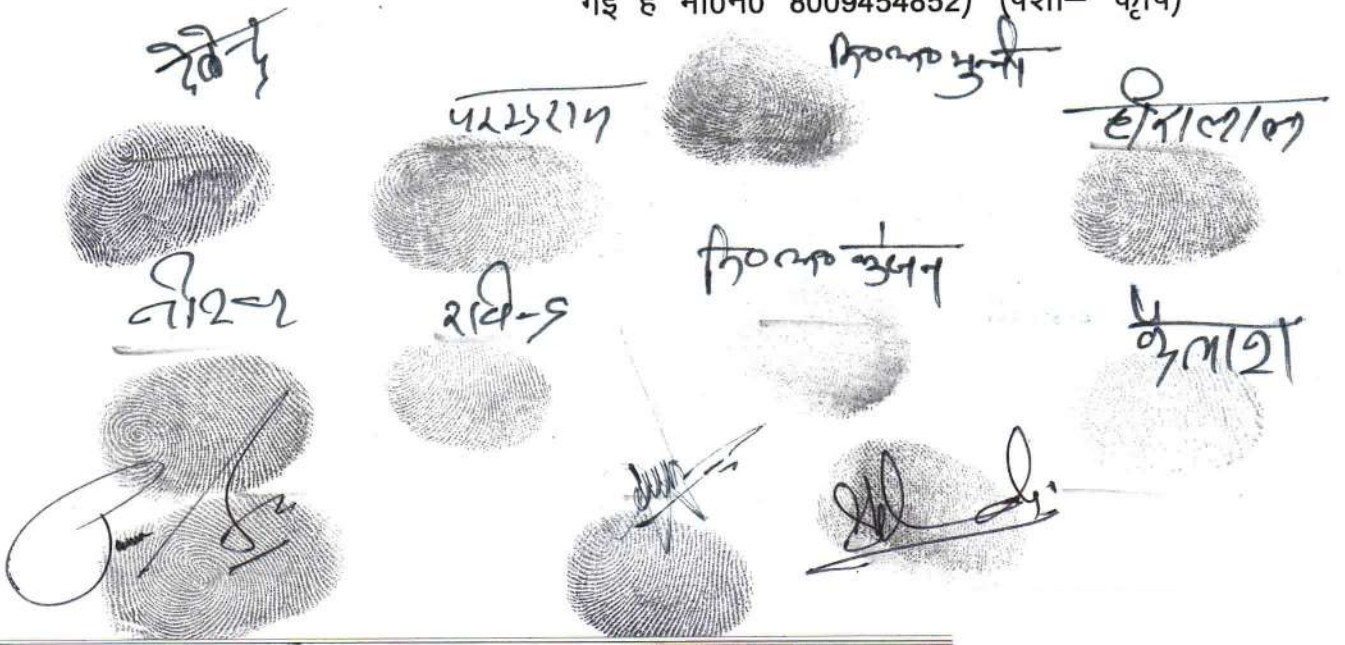 गई है मो०नं० 8009454852) (पेशा– कृषि)
देवेन्द्र
परशुराम
नि०अ० मुन्नी
हीरालाल
नीरज
रविन्द्र
नि०अ० कुंजन
कैलाश